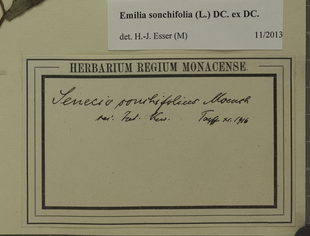 Emilia sonchifolia (L.) DC. ex DC.
det. H.-J. Esser (M) 11/2013
HERBARIUM REGIUM MONACENSE.
Senecio sonchifolius Moench